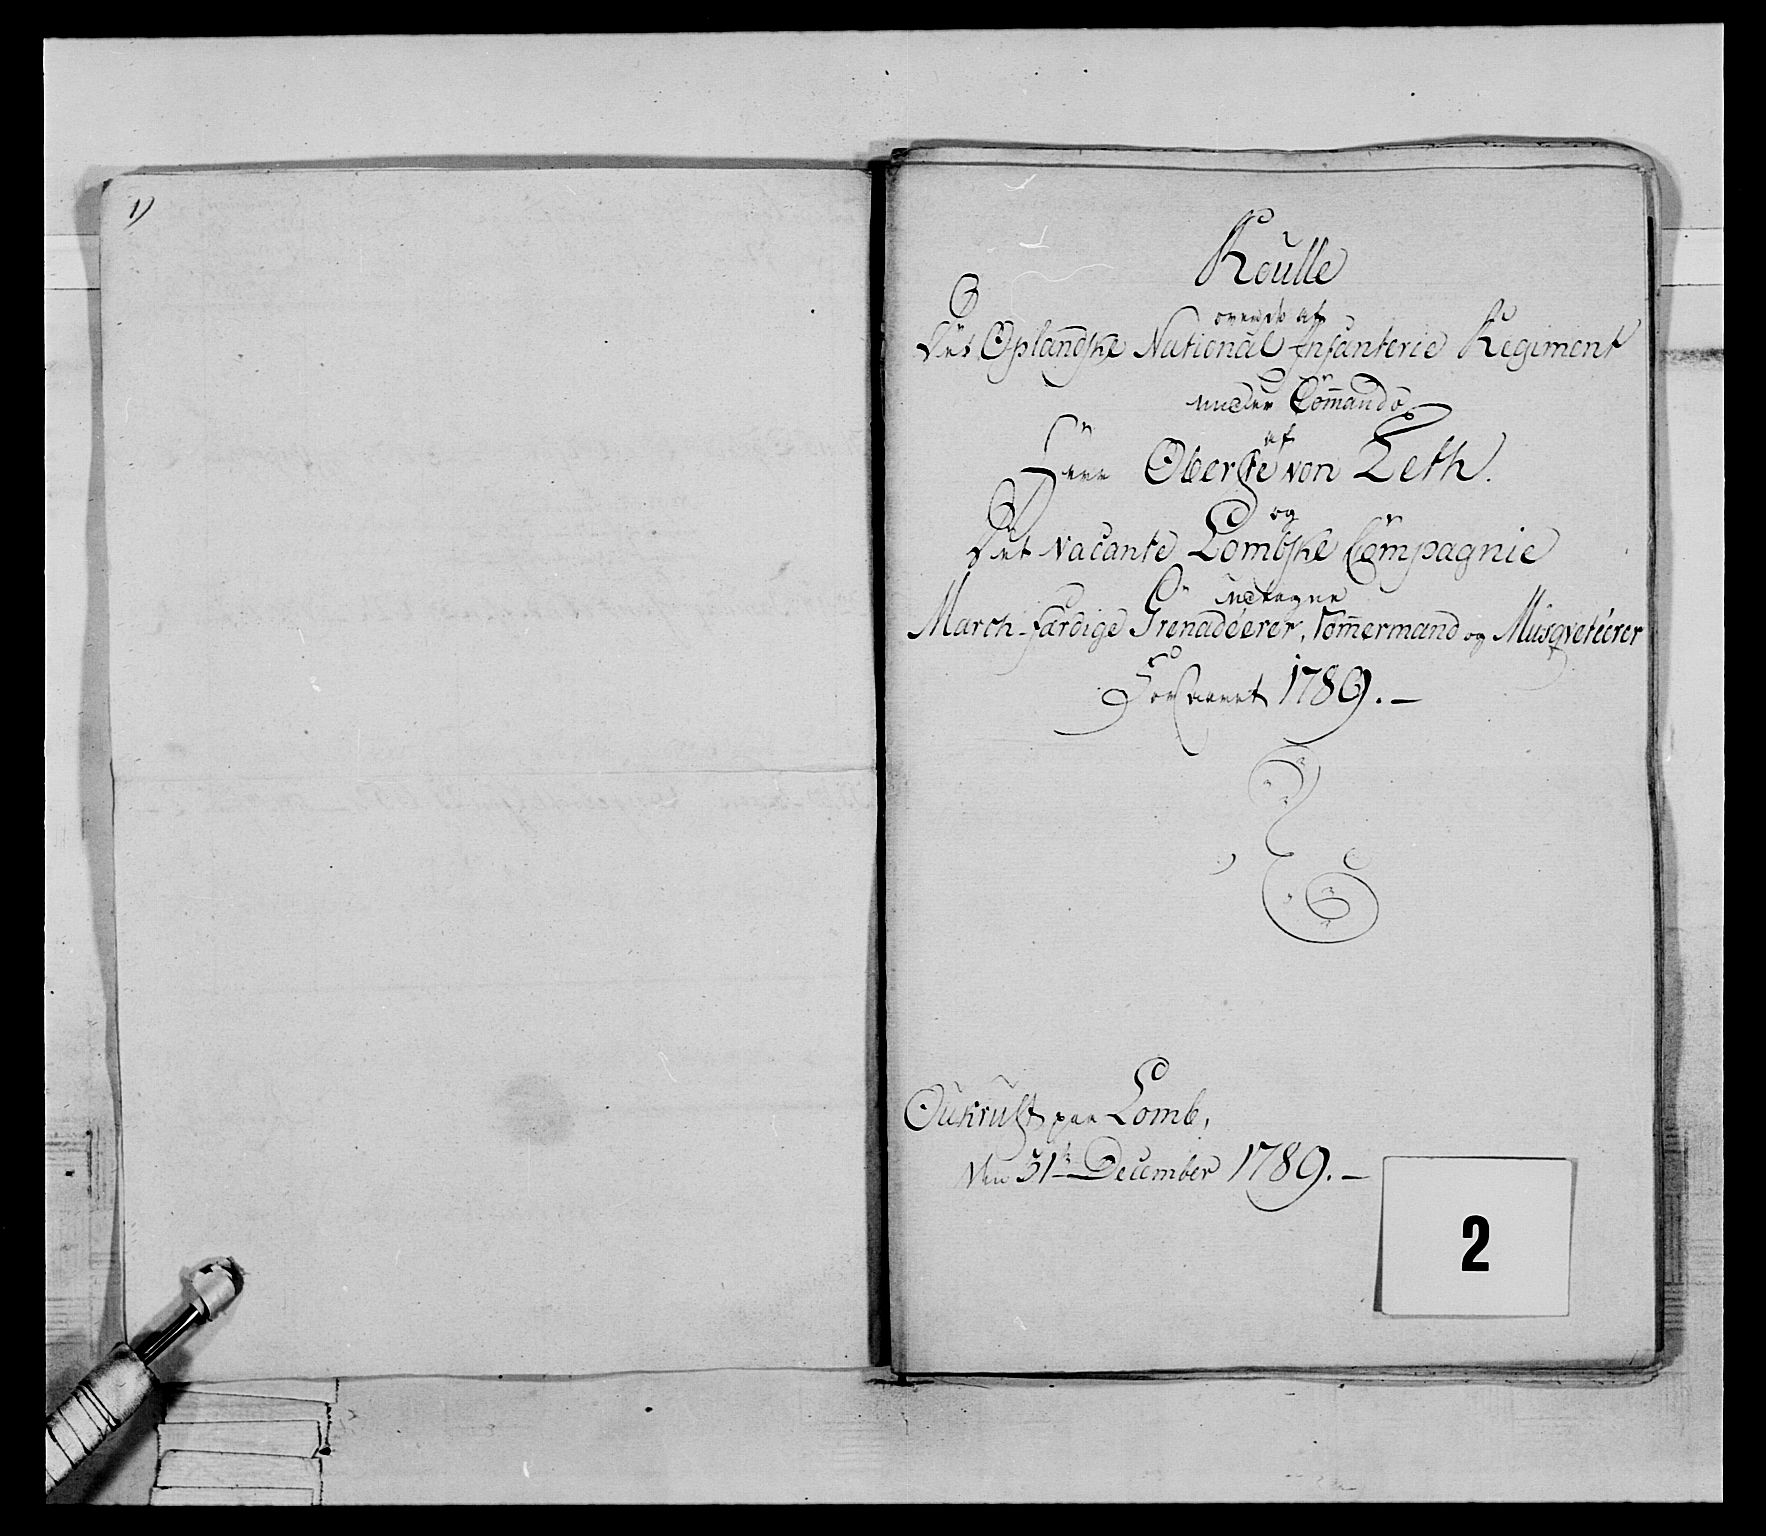 1)
Roulle
over de af
Det Oplandske National Infanterie Regiment
under Commando
af
Herr Oberste von Zeth.
og
Det vacante Lombske Compagnie
March-færdige Grenadéerer, Tømmermænd og Musqvetierer
For aaret 1789.—
Oukrust paa Lomb,
Den 31te December 1789.—
2